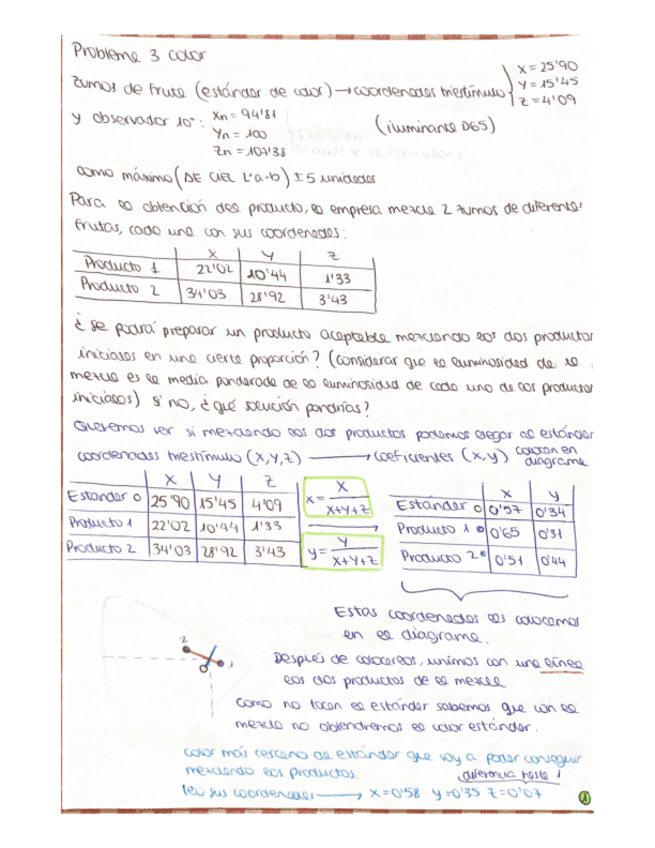 Problema 3 color
Zumos de fruta (estándar de color) → coordenadas triestímulo { X = 25'90
Y = 15'45
Z = 4'09
y observador 10°: Xn = 94'81
(iluminante D65)
Yn = 100
Zn = 107'38
como máximo (ΔE CIEL L*a-b) ± 5 unidades
Para la obtención del producto, la empresa mezcla 2 zumos de diferentes
frutas, cada una con sus coordenadas:
X Y Z
Producto 1 22'02 10'44 1'33
Producto 2 34'03 28'92 3'43
¿Se podrá preparar un producto aceptable mezclando los dos productos
iniciales en una cierta proporción? (considerar que la luminosidad de la
mezcla es la media ponderada de la luminosidad de cada uno de los productos
iniciales) Si no, ¿qué solución pondrías?
Queremos ver si mezclando los dos productos podemos llegar al estándar
coordenadas triestímulo (X,Y,Z) → coeficientes (x,y) colocan en
diagrama
X Y Z
Estándar 0 25'90 15'45 4'09
Producto 1 22'02 10'44 1'33
Producto 2 34'03 28'92 3'43
x = X / X+Y+Z
y = Y / X+Y+Z
x y
Estándar 0 0'57 0'34
Producto 1 0'65 0'31
Producto 2 0'51 0'44
Estas coordenadas las colocamos
en el diagrama.
2
1
0
Después de colocarlos, unimos con una línea
los dos productos de la mezcla
Como no tocan el estándar sabemos que con la
mezcla no obtendremos el color estándar.
Color más cercano al estándar que voy a poder conseguir
mezclando los productos.
diferencia hasta 1
leo sus coordenadas → x = 0'58 y = 0'35 z = 0'07
1